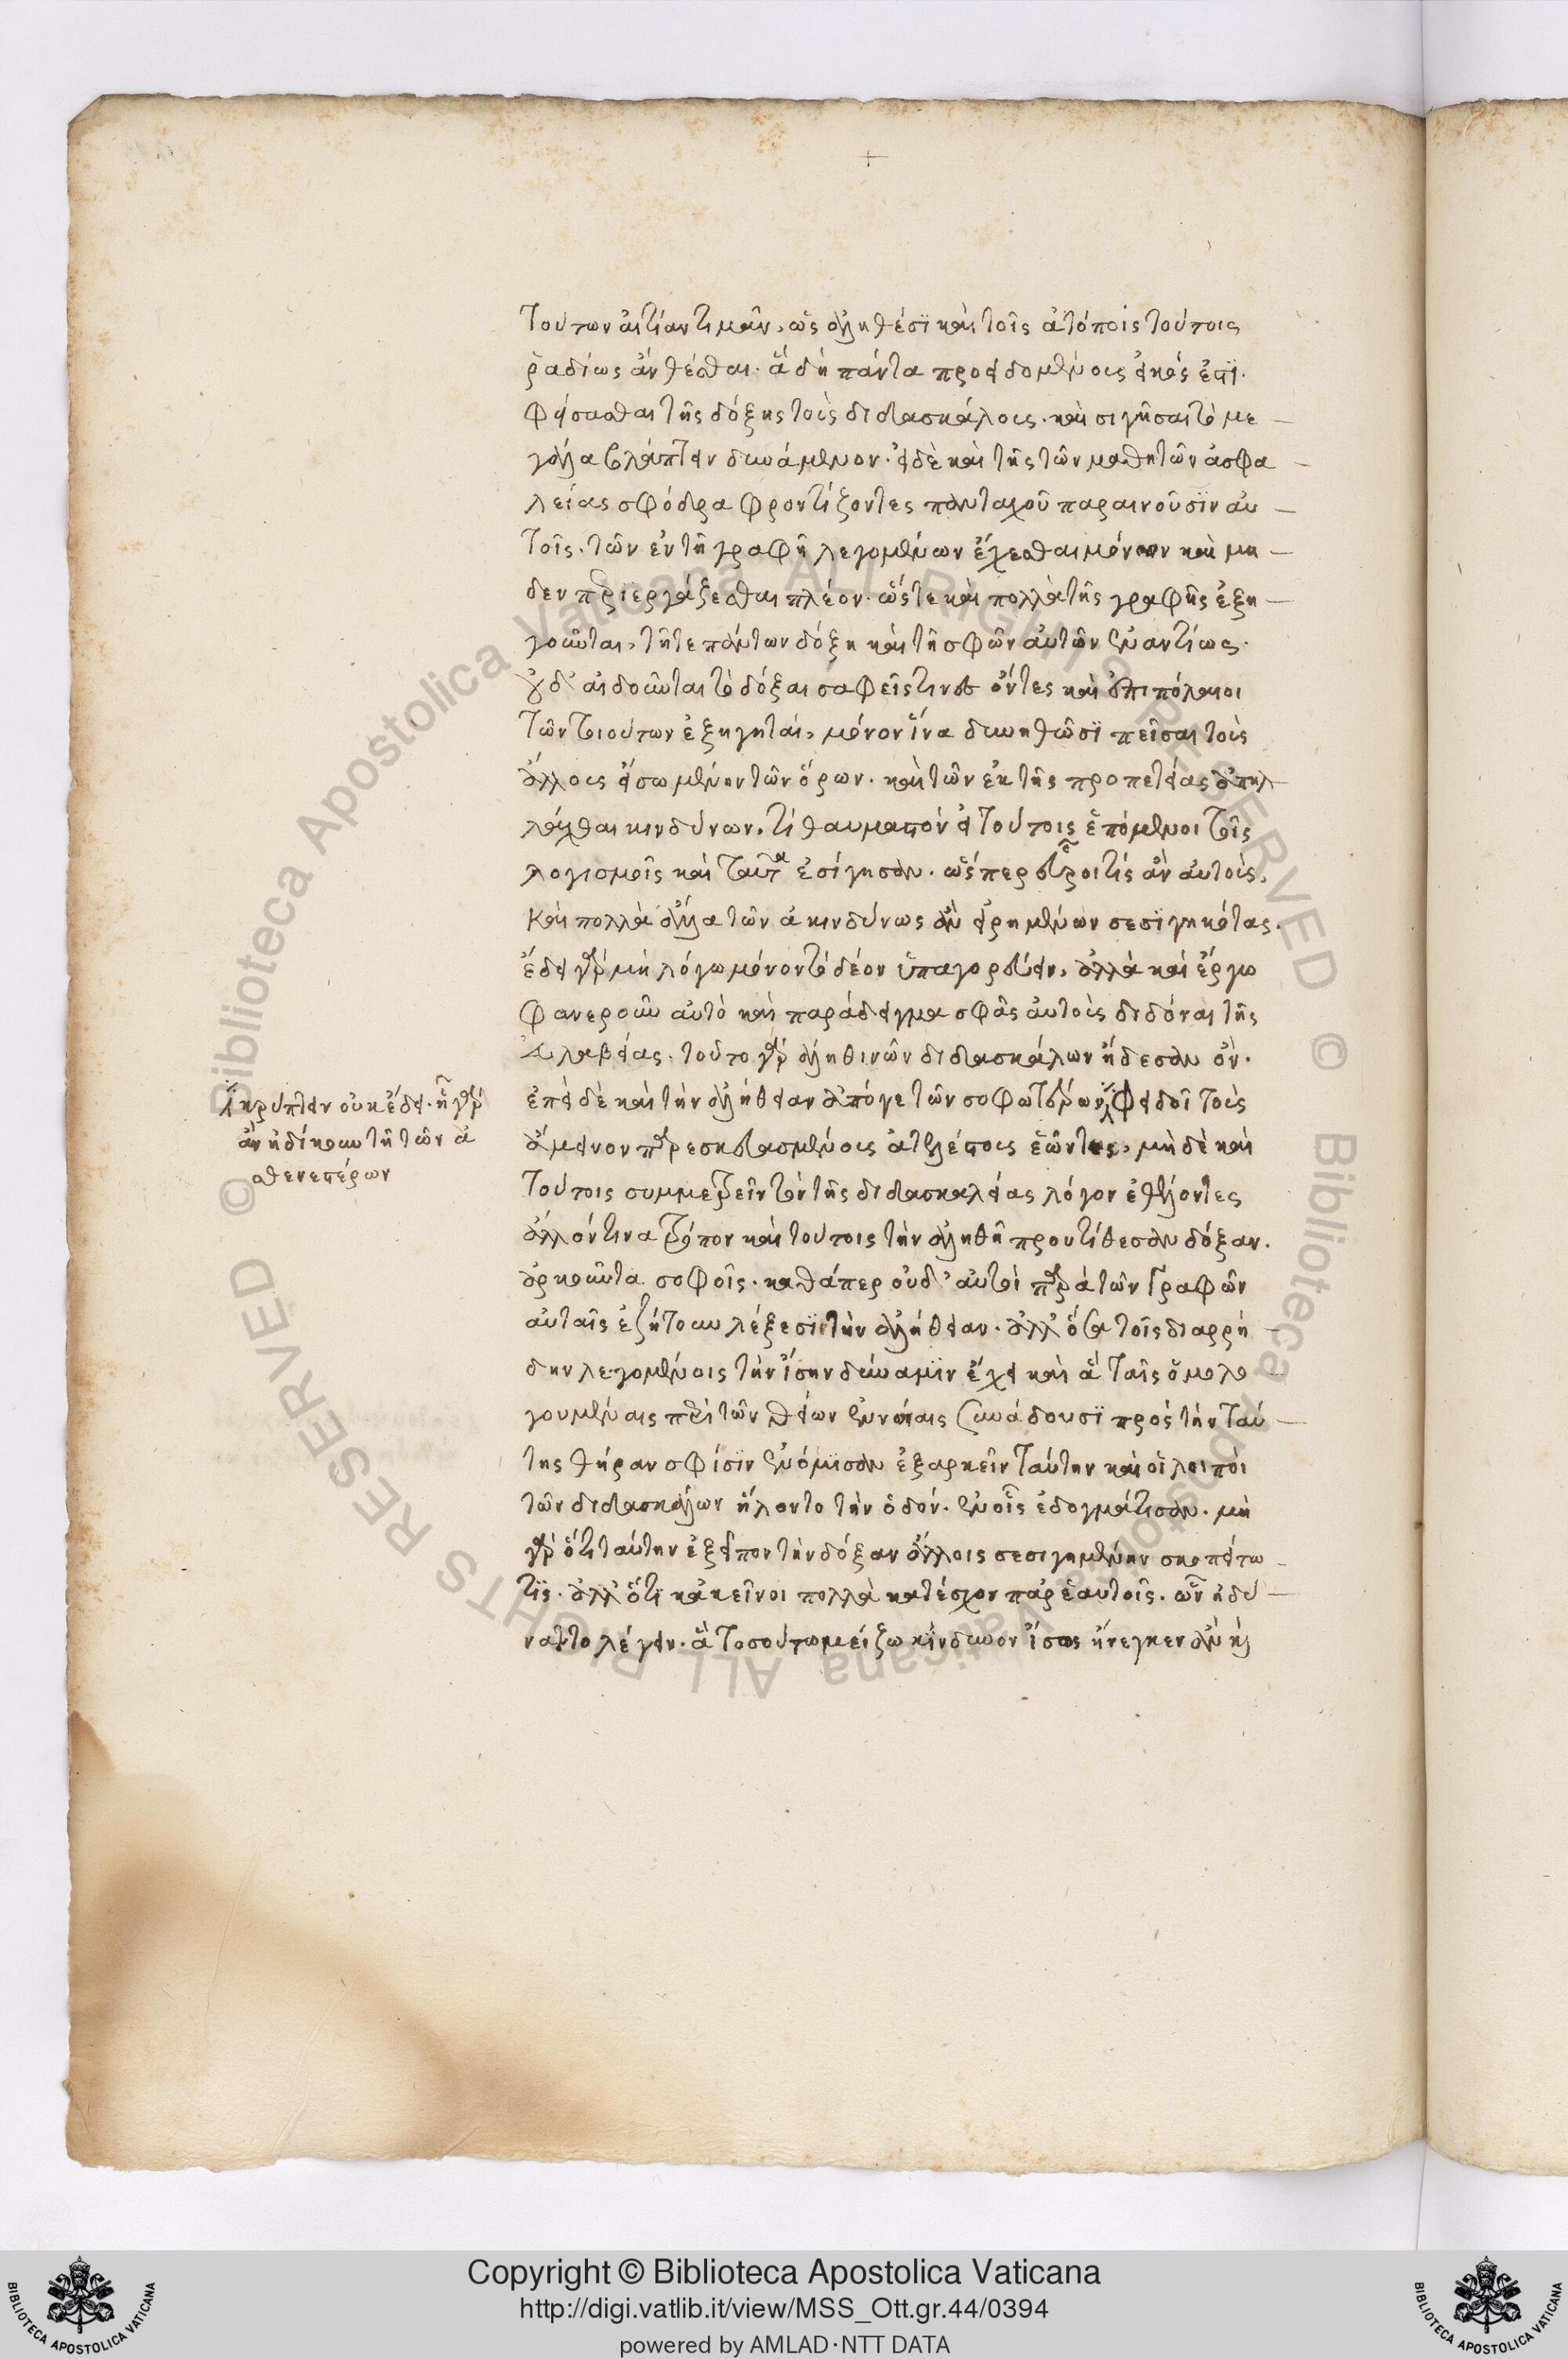 τούτων αἰτίαν τιμᾶν, ὡς ἀληθέσι καὶ τοῖς ἀτόποις τούτοις
ῥαδίως ἀνθέσθαι. ἃ δὴ πάντα προειδομένους εἰκός ἐστι.
φείσασθαι τῆς δόξης τοὺς διδασκάλους. καὶ σιγῆσαι τὸ με
γάλα βλάπτειν δυνάμενον. εἰ δὲ καὶ τῆς τῶν μαθητῶν ἀσφα
λείας σφόδρα φροντίζοντες πανταχοῦ παραινοῦσιν αὐ
τοῖς. τῶν ἐν τῇ γραφῇ λεγομένων ἔχεσθαι μόνον καὶ μη
δεν περιεργάζεσθαι πλέον. ὥστε καὶ πολλὰ τῆς γραφῆς ἐξη
γοῦνται, τῇ τε πάντων δόξη καὶ τῇ σφῶν αὐτῶν ἐναντίως.
οὐδ' αἰδοῦνται τὸ δόξαι σαφεῖς τινες ὄντες καὶ ἐπιπόλαιοι
τῶν τοιούτων ἐξηγηταί, μόνον ἵνα δυνηθῶσι πεῖσαι τοὺς
ἄλλους εἴσω μένειν τῶν ὅρων. καὶ τῶν ἐκ τῆς προπετείας ἀπηλ
λάχθαι κινδύνων. τί θαυμαστόν εἰ τούτοις ἑπόμενοι τοῖς
λογισμοῖς καὶ ταῦτα ἐσίγησαν. ὥσπερ εὕροι τίς ἂν αὐτοὺς,
καὶ πολλὰ ἄλλα τῶν ἀκινδύνως ἂν εἰρημένων σεσιγηκότας.
ἔδει γὰρ μὴ λόγω μόνον τὸ δέον ὑπαγορεύειν, ἀλλὰ καὶ ἔργω
φανεροῦν αὐτὸ καὶ παράδειγμα σφᾶς αὐτοὺς διδόναι τῆς
εὐλαβείας. τοῦτο γὰρ ἀληθινῶν διδασκάλων ᾔδεσαν ὄν.
ἐπεὶ δὲ καὶ τὴν ἀλήθειαν ἀπό γε τῶν σοφωτέρων φειδοῖ τοὺς
ἄμεινον παρεσκευασμένους ἀτελέστους ἐῶντες, μὴ δὲ καὶ
τούτοις συμμετρεῖν τὸν τῆς διδασκαλίας λόγον ἐθέλοντες
ἄλλόν τινα τρόπον καὶ τούτοις τὴν ἀληθῆ προυτίθεσαν δόξαν.
ἀρκοῦντα σοφοῖς. καθάπερ οὐδ' αὐτοὶ παρὰ τῶν γραφῶν
αὐταῖς ἐζήτουν λέξεσι τὴν ἀλήθειαν. ἀλλ' ὅσα τοῖς διαρρή
δην λεγομένοις τὴν ἴσην δύναμιν ἔχει καὶ ἃ ταῖς ὁμολο
γουμέναις περὶ τῶν θείων ἐννοίαις συνάδουσι πρὸς τὴν ταύ
της θήραν σφίσιν ἐνόμισαν ἐξαρκεῖν ταύτην καὶ οἱ λοιποὶ
τῶν διδασκάλων εἵλοντο τὴν ὁδόν. ἐν οἷς ἐδογμάτισαν. μὴ
γὰρ ὅτι ταύτην ἐξεῖπον τὴν δόξαν ἄλλοις σεσιγημένην σκοπείτω
τὶς. ἀλλ' ὅτι κἀκεῖνοι πολλὰ κατέσχον παρ' ἑαυτοῖς. ὧν ἠδύ
ναντο λέγειν. ἃ τοσούτω μείζω κίνδυνον ἴσως ἤνεγκεν ἂν ἢ
κρύπτειν οὐκ ἔδει. ἦ γὰρ
ἂν ἠδίκουν τῇ τῶν ἀ
σθενεστέρων
Copyright © Biblioteca Apostolica Vaticana
http://digi.vatlib.it/view/MSS_Ott.gr.44/0394
powered by AMLAD·NTT DATA
BIBLIOTECA APOSTOLICA VATICANA
BIBLIOTECA APOSTOLICA VATICANA
© Biblioteca Apostolica Vaticana ALL RIGHTS RESERVED
© Biblioteca Apostolica Vaticana ALL RIGHTS RESERVED